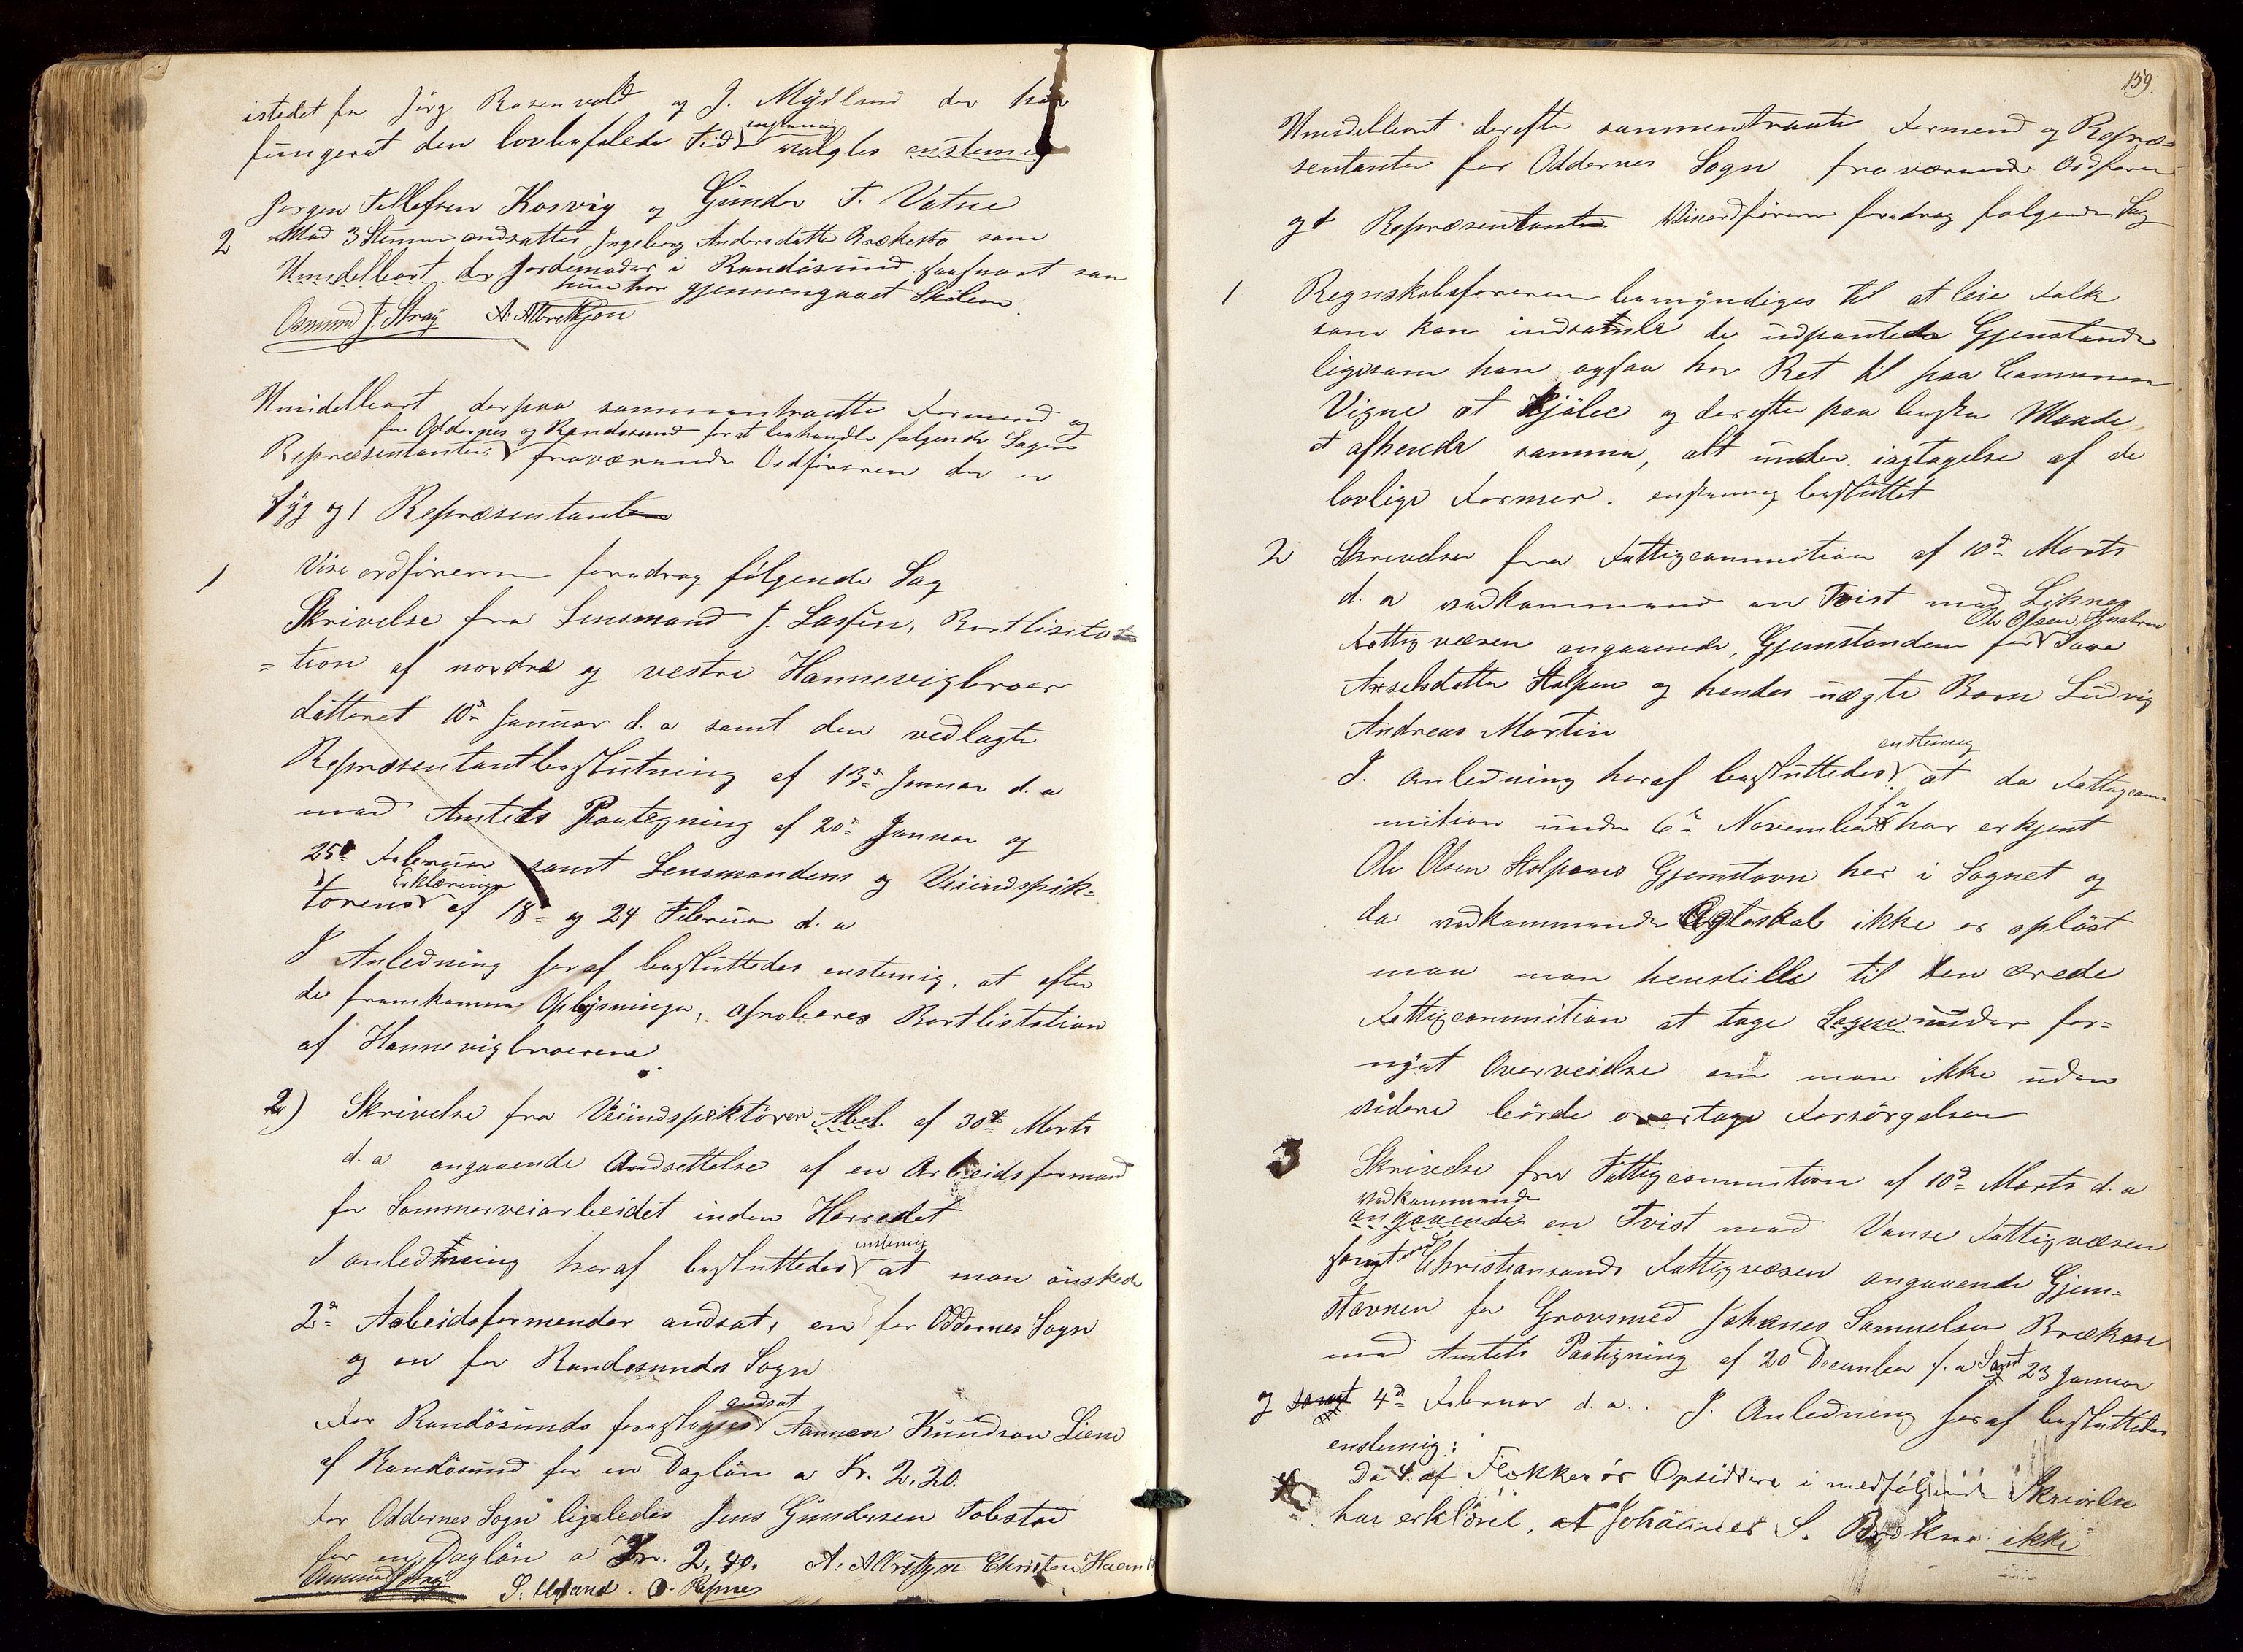 istedet for Jörg Rosenvold og J. Mÿdland der har
fungerat den lovbefalede Tid valgtes enstemig
Jørgen Tellefsen Kosvig og Gunder T. Vatne
2 Med 3 Stemmer andsattes Ingeborg Andersdatter Brækesto som
Umidelbart der Jordemoder i Randösund saasnart som
hun har gjennemgaaet Skolen.
Osmund J. Straÿ A. Albretsøn
Umidelbart derpaa sammentraadte Formend og
for Oddernes og Randesund for at behandle følgende Sager
Repræsentanter fraværende Ordföreren der er
sÿg og 1 Repræsentant
1 Vise ordföreren foredrog følgende Sag
Skrivelse fra Lensmand J. Lassen, Bortlisita
=tion af nordre og vestre Hannevigbroer
datteret 10de Januar d. a samt den vedlagte
Repræsentantbeslutning af 13de Januar d. a
med Amtets Paategning af 20de Januar og
25de Februar samt Lensmandens og Veiindspek=
torens Erklæringer af 18de og 24 Februar d. a
I Anledning heraf besluttedes enstemig, at efter
de fremkomne Oplÿsninger, aproberes Bortlistation
af Hannevigbroerene.
2) Skrivelse fra Veiindspektören Abel af 30te Marts
d. a angaaende Andsettelse af en Arbeidsformand
for Sommerveiarbeidet inden Herredet
I anledning heraf besluttedes enstemig at man önskede
2de Arbeidsformender andsat, en for Oddernes Sogn
og en for Randesunds Sogn
For Randösunds foreslogges andsat Aanen Knudson Liene
af Randösund for en Daglön a Kr. 2,20.
For Oddernes Sogn ligeledes Jens Gundersen Tobestad
for en Daglön a Kr. 2,40. A. Albretsøn Christen Haan
Osmund J Straÿ S. Ugland. O Repnes
159.
Umidelbart derefter sammentraate Formend og Repræ=
sentanter for Oddernes Sogn fraværende Ordføreren
og 1 Repræsentant Viseordföreren foredrog følgende Sag
1 Regnskabsføreren bemÿndiges til at leie Folk
som kan indsamle de udpantede Gjenstande
ligesom han ogsaa har Ret til paa Comunens
Vegne at kjöbe og derefter paa beste Maade
at afhende samme, alt under iagtagelse af de
lovlige Former. enstemig besluttet
2 Skrivelse fra Fattigcommition af 10de Marts
d. a vedkommende en Tvist med Liknes
Fattigvæsen angaaende, Gjemstanden for Ole Olsen Hustru Sara
Axselsdatter Stolpen og hendes uægte Barn Ludvig
Andreas Martin
I. anledning heraf besluttedes enstemig at da Fattigcom=
mition under 6te November f. a har erkjent
Ole Olsen Stolpens Gjemstavn her i Sognet og
da vedkommende Ægteskab ikke er oplöst
maa man henstille til den ærede
Fattigcommition at tage Sagen under for=
nÿet Overveielse om man ikke uden
videre börde overtage Forsörgelsen
3 Skrivelse fra Fattigcommition af 10de Marts d. a
vedkommende
angaaende en Tvist med Vanse Fattigvæsen
samt med Christiansands Fattigvæsen angaaende Gjem=
stavnen for Grovsmed Johanes Samuelsen Brækne
med Amtets Paategning af 20 December f. a Samt 23 Januar
og samt 4de Februar d. a.. I. Anledning heraf besluttedes
enstemig:
Da 4 af Flekkerös Opsiddere i medfölgende Skrivelse
har erklöret, at Johannes S. Brækne ikke